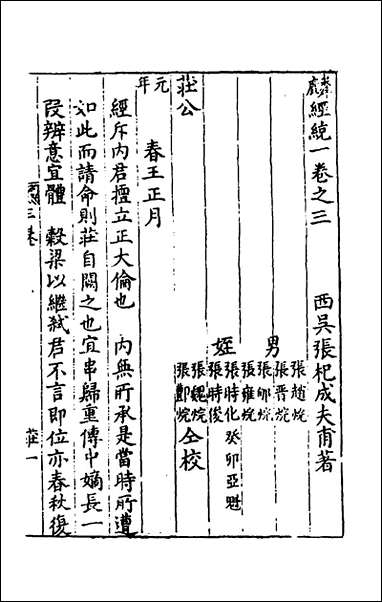 麟經統一卷之三
西吳張杞成夫甫著
男
張趙烷
張晋烷
張䢴烷
張雍烷
姪
張時化 癸卯亞魁
張時俊
張魏烷
張酆烷
仝校
莊公
元年
春王正月
經斥内君擅立正大倫也 内無所承是當時所遭
如此而請命則莊自闕之也宜串歸重傳中嫡長一
段辨意宜體 穀梁以繼弑君不言即位亦春秋復
三卷
莊一